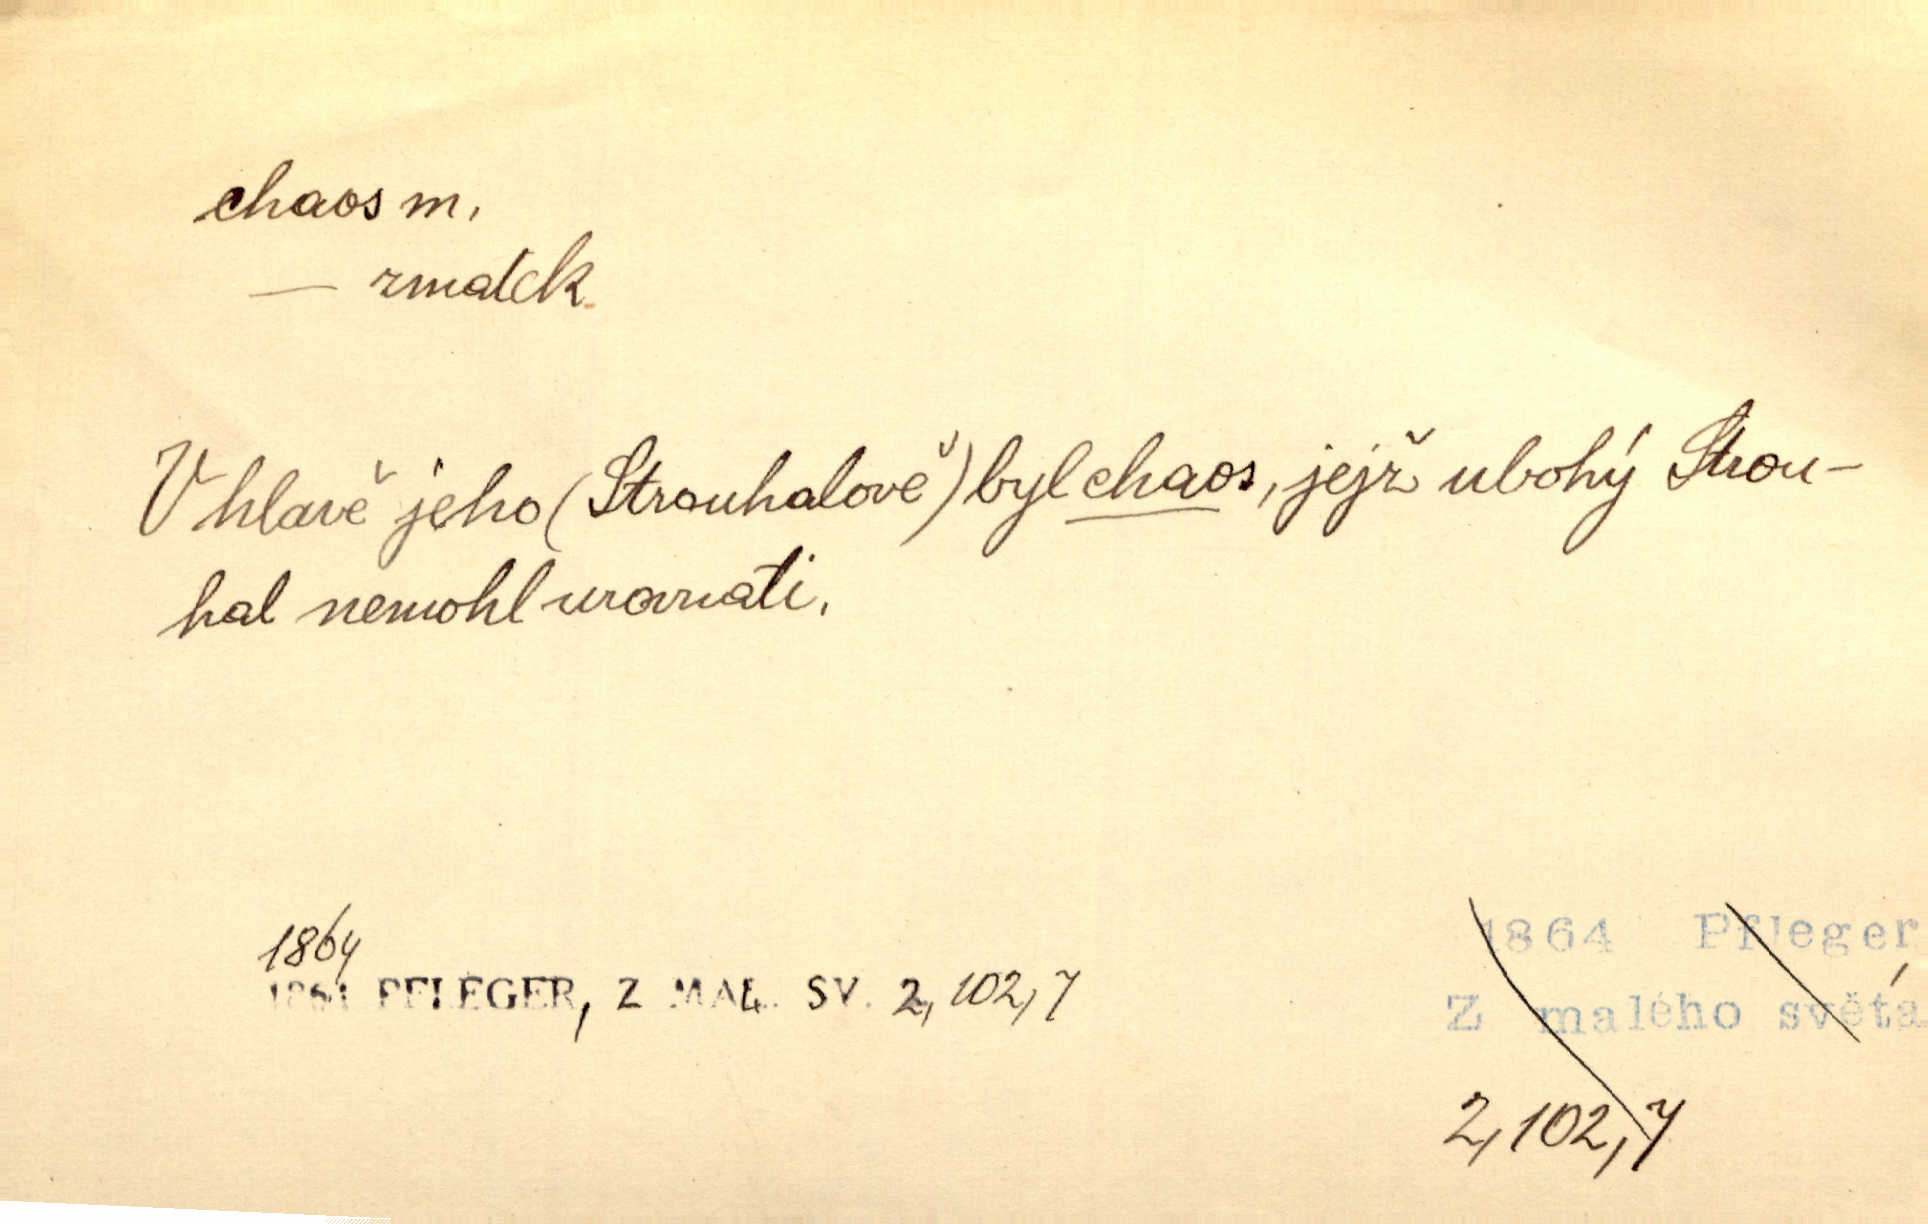 chaos m.
— zmatek
V hlavě jeho (Strouhalově) byl chaos, jejž ubohý Strou-
hal nemohl urovnati.
1864
1864 PFLEGER, Z MAL. SV. 2, 102, 7
1864 Pfleger,
Z malého světa
2, 102, 7